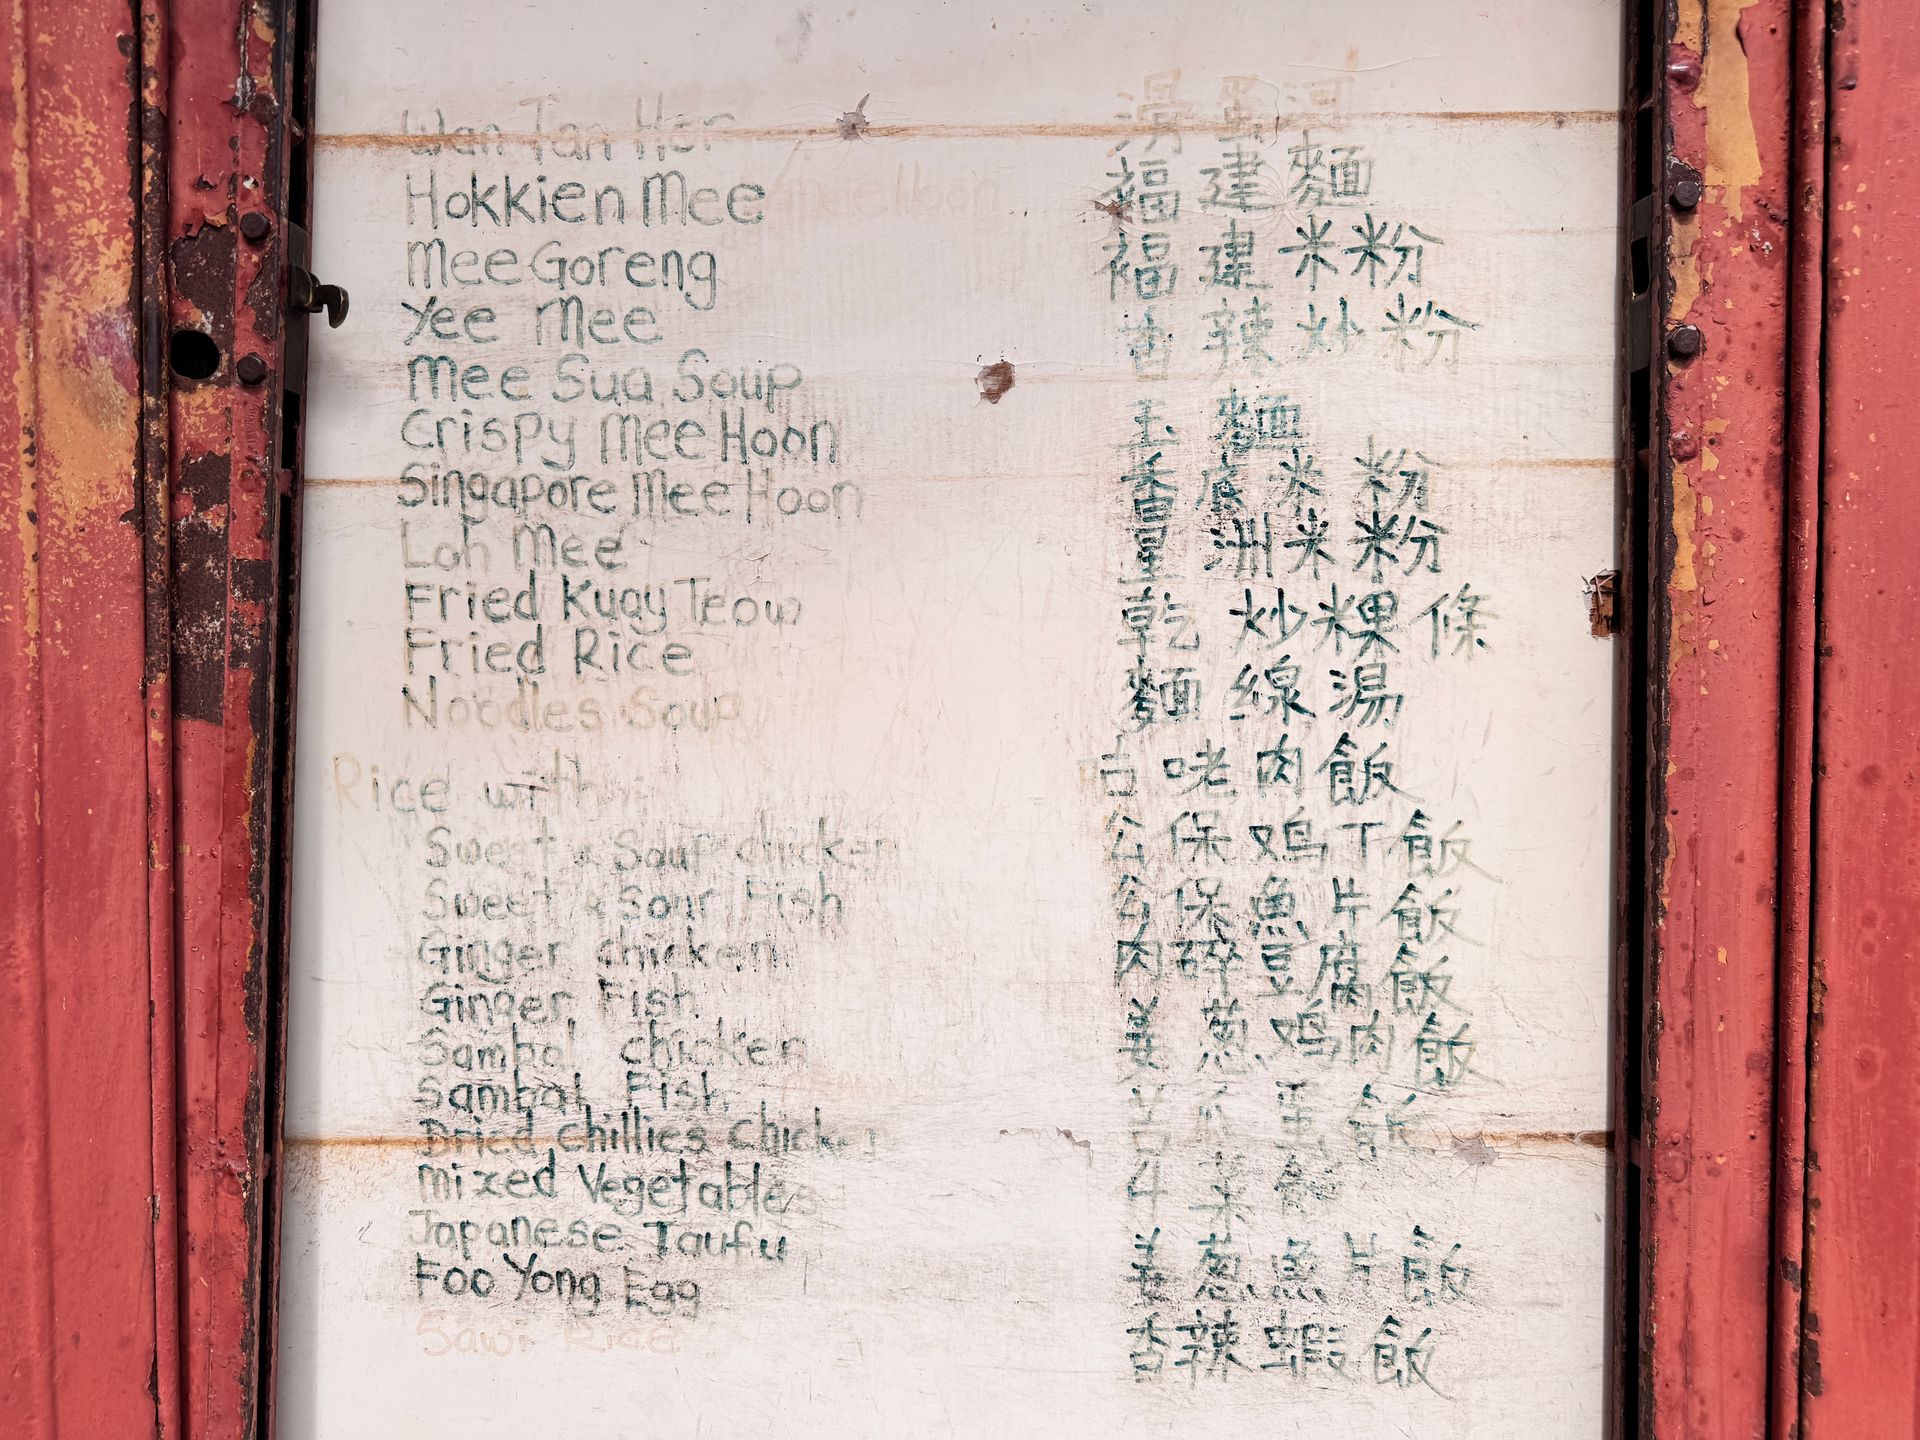 Wan Tan Hor
Hokkien Mee
Mee Goreng
Yee Mee
Mee Sua Soup
Crispy Mee Hoon
Singapore Mee Hoon
Loh Mee
Fried Kuay Teow
Fried Rice
Noodles Soup
Rice with
Sweet & Sour chicken
Sweet & Sour Fish
Ginger chicken
Ginger Fish
Sambal chicken
Sambal Fish
Dried chillies chicken
mixed Vegetables
Japanese Taufu
Foo Yong Egg
Sawi Rice
滑蛋河
福建麵
福建米粉
香辣炒粉
玉麵
香底米粉
星洲米粉
乾炒粿條
麵線湯
古咾肉飯
公保鸡丁飯
公保魚片飯
肉碎豆腐飯
姜葱鸡肉飯
蛋飯
菜飯
姜葱魚片飯
香辣蝦飯